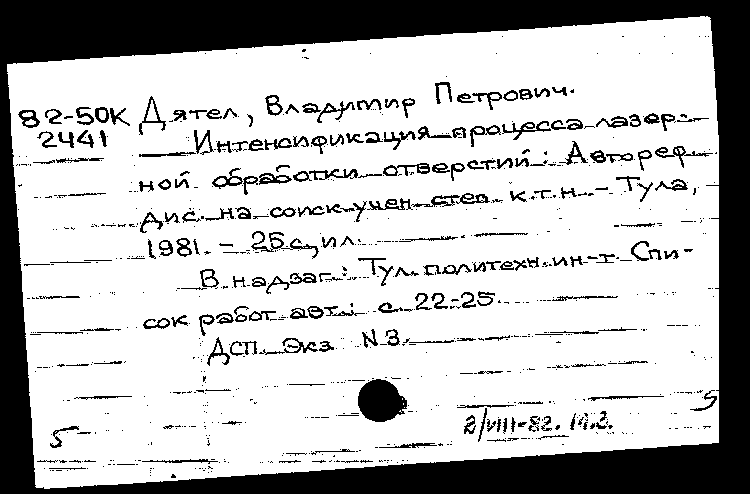 82-50К Дятел, Владимир Петрович.
2441 Интенсификация процесса лазер-
ной обработки отверстий: Автореф.
дис. на соиск. учен. степ. к.т.н. - Тула,
1981. - 25 с, ил.
В надзаг.: Тул. политехн. ин-т. Спи-
сок работ авт.: с. 22-25.
ДСП. Экз N 3.
5
2/VIII-82.